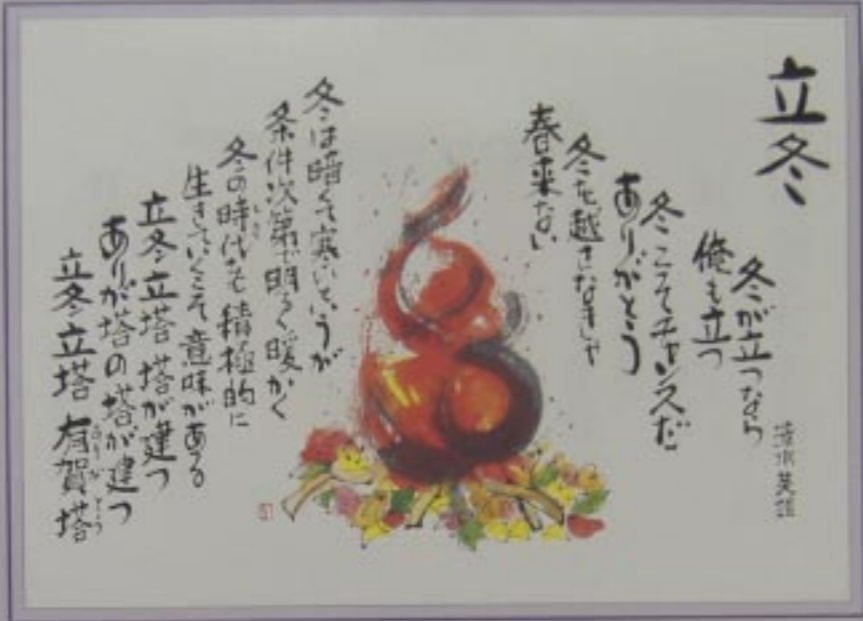 立冬
冬が立つなら
俺も立つ
冬こそチャンスだ
ありがとう
冬を越さなきゃ
春来ない
冬は暗くて寒いというが
条件次第で明るく暖かく
冬の時代を積極的に
生きていくこそ意味がある
立冬立塔 塔が建つ
ありが塔の塔が建つ
立冬立塔 有賀塔
ありがとう